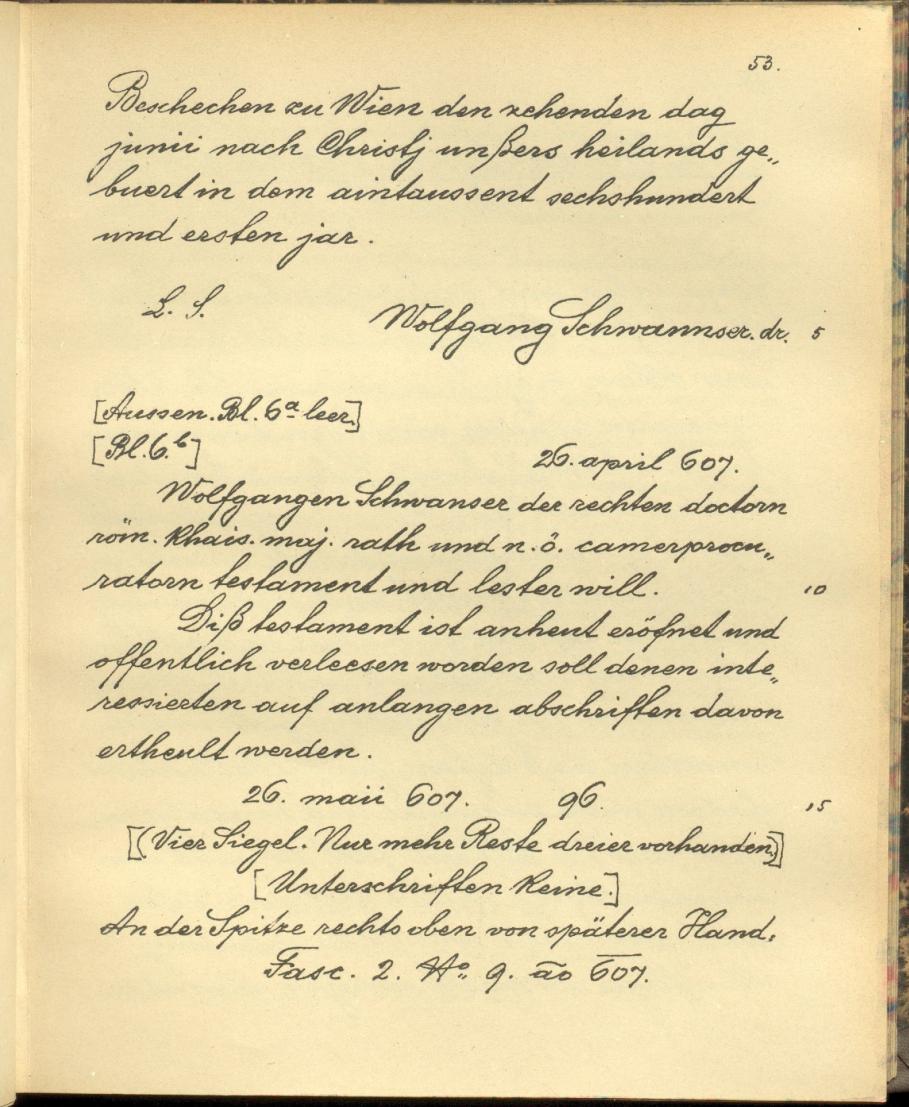 53.
Beschechen zu Wien den zehenden dag
junii nach Christj unßers heilands ge„
buert in dem aintaussent sechshundert
und ersten jar.
L. S.
Wolfgang Schwannser. dr. 5
[Aussen. Bl. 6ª leer.]
[Bl. 6.ᵇ]
26. april 607.
Wolfgangen Schwanser der rechten doctorn
röm. khais. maj. rath und n. ö. camerprocu„
ratorn testament und lester will. 10
Diß testament ist anheut eröfnet und
offentlich verleesen worden soll denen inte„
ressierten auf anlangen abschriften davon
ertheult werden.
26. maii 607. 96. 15
[(Vier Siegel. Nur mehr Reste dreier vorhanden.)]
[Unterschriften keine.]
An der Spitze rechts oben von späterer Hand:
Fasc. 2. Nº 9. a̅o 6̅0̅7.